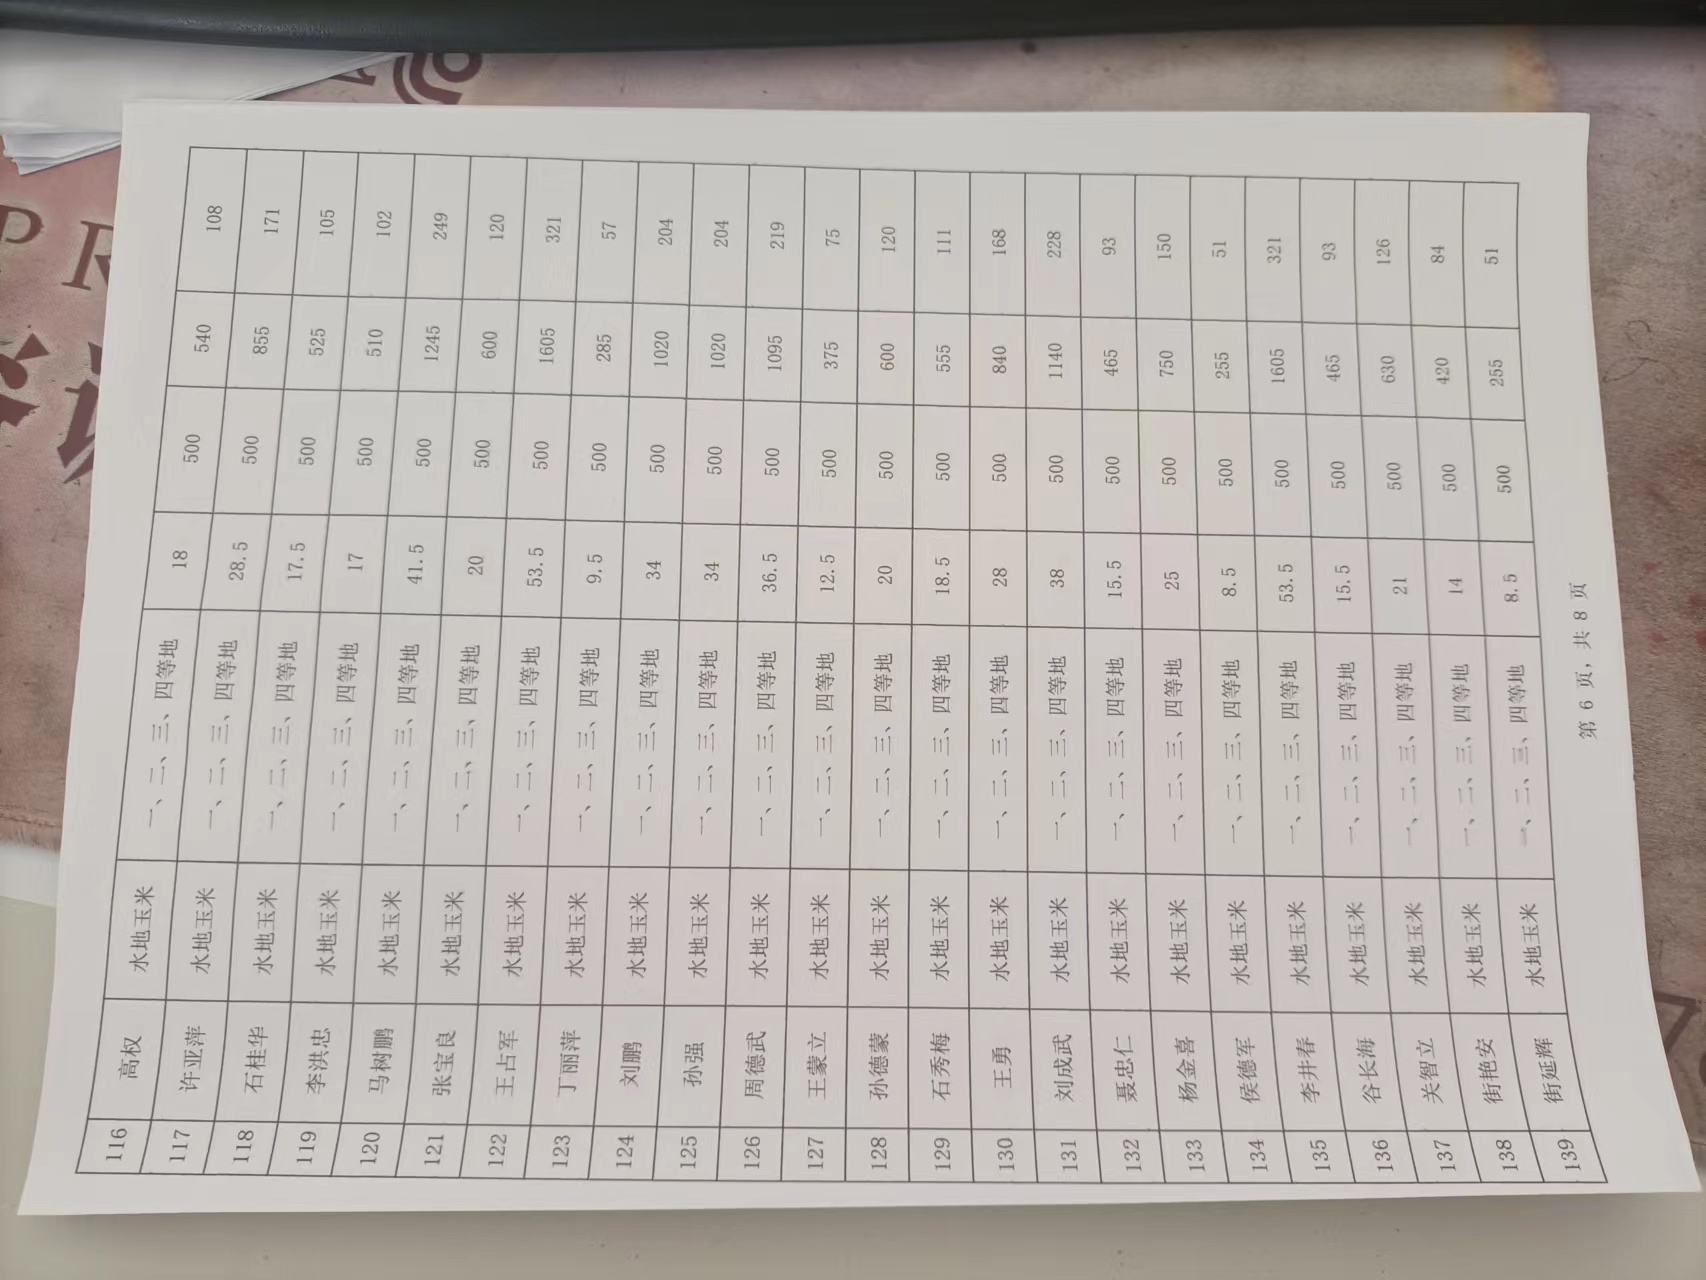 116 高权 水地玉米 一、二、三、四等地 18 500 540 108
117 许亚萍 水地玉米 一、二、三、四等地 28.5 500 855 171
118 石桂华 水地玉米 一、二、三、四等地 17.5 500 525 105
119 李洪忠 水地玉米 一、二、三、四等地 17 500 510 102
120 马树鹏 水地玉米 一、二、三、四等地 41.5 500 1245 249
121 张宝良 水地玉米 一、二、三、四等地 20 500 600 120
122 王占军 水地玉米 一、二、三、四等地 53.5 500 1605 321
123 丁丽萍 水地玉米 一、二、三、四等地 9.5 500 285 57
124 刘鹏 水地玉米 一、二、三、四等地 34 500 1020 204
125 孙强 水地玉米 一、二、三、四等地 34 500 1020 204
126 周德武 水地玉米 一、二、三、四等地 36.5 500 1095 219
127 王蒙立 水地玉米 一、二、三、四等地 12.5 500 375 75
128 孙德蒙 水地玉米 一、二、三、四等地 20 500 600 120
129 石秀梅 水地玉米 一、二、三、四等地 18.5 500 555 111
130 王勇 水地玉米 一、二、三、四等地 28 500 840 168
131 刘成武 水地玉米 一、二、三、四等地 38 500 1140 228
132 聂忠仁 水地玉米 一、二、三、四等地 15.5 500 465 93
133 杨金喜 水地玉米 一、二、三、四等地 25 500 750 150
134 侯德军 水地玉米 一、二、三、四等地 8.5 500 255 51
135 李井春 水地玉米 一、二、三、四等地 53.5 500 1605 321
136 谷长海 水地玉米 一、二、三、四等地 15.5 500 465 93
137 关智立 水地玉米 一、二、三、四等地 21 500 630 126
138 街艳安 水地玉米 一、二、三、四等地 14 500 420 84
139 街延辉 水地玉米 一、二、三、四等地 8.5 500 255 51
第 6 页，共 8 页